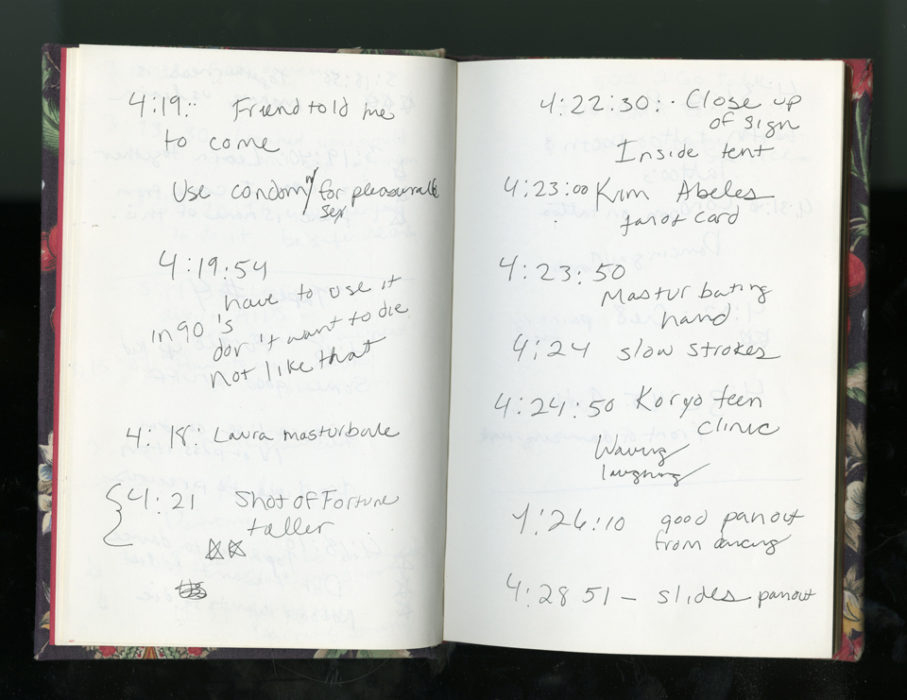 4:19:· Friend told me
to come
Use condom for pleasurable
sex
4:19:54
have to use it
in 90's
don't want to die
not like that
4:18: Laura masturbate
4:21 Shot of Fortune
teller
4:22:30:· Close up
of sign
Inside tent
4:23:00 Kim Abeles
tarot card
4:23:50
Masturbating
hand
4:24 slow strokes
4:24:50 Koryo teen
clinic
Waving
laughing
4:26:10 good panout
from dancing
4:28 51 – slides panout